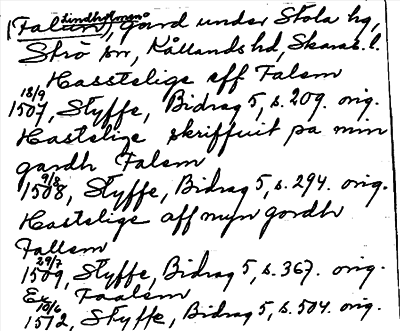 (Falun, Lindholmen, gård under Stola hg,
Strö sn, Kållands hd, Skarab. l.
Hasstelige aff Falem
18/9
1507, Styffe, Bidrag 5, s. 209. orig.
Hastelige skriffuit pa min
gardh Falem
9/8
1508, Styffe, Bidrag 5, s. 294. orig.
Hastelige aff myn gordh
Fallem
29/7
1509, Styffe, Bidrag 5, s. 367. orig.
Ex Faalem
10/6
1512, Styffe, Bidrag 5, s. 504. orig.